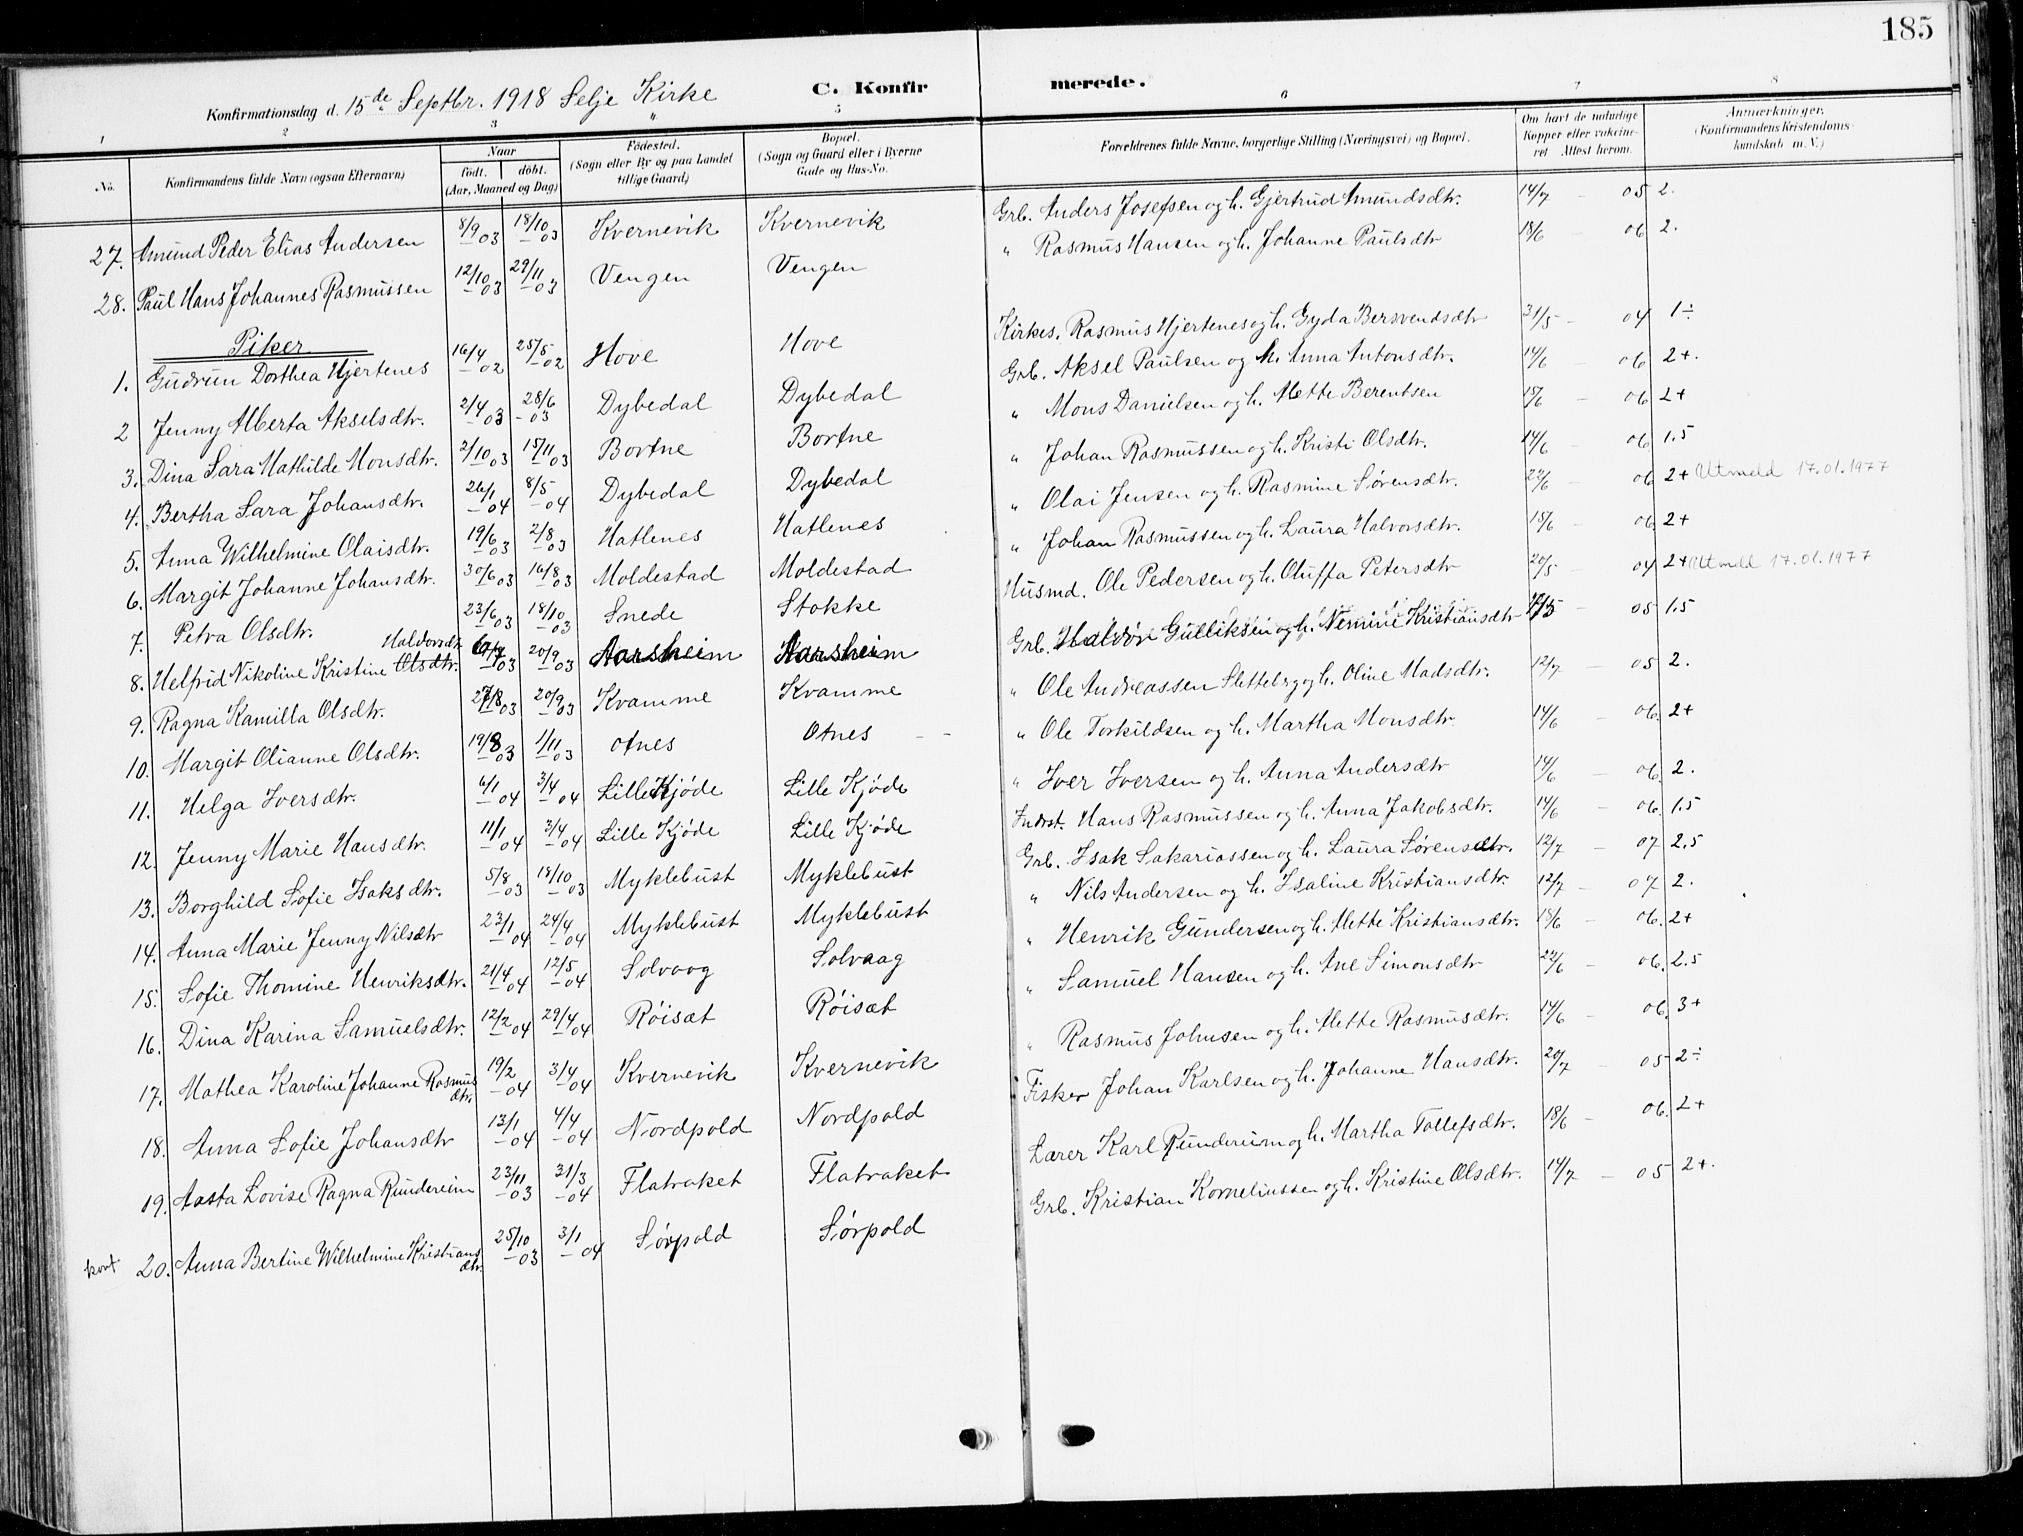 185
Konfirmationsdag d. 15de Septbr. 1918 Selje Kirke C. Konfirmerede.
1 2 3 4 5 6 7 8
No. Konfirmandens fulde Navn (ogsaa Efternavn) Naar födt. döbt. (Aar, Maaned og Dag) Födested. (Sogn eller By og paa Landet tillige Gaard) Bopæl. (Sogn og Gaard eller i Byerne Gade og Hus-No. Forældrenes fulde Navne, borgerlige Stilling (Næringsvei) og Bopæl. Om havt de naturlige Kopper eller vakcineret Attest herom. Anmærkninger. (Konfirmandens Kristendomskundskab m. V.)
27. Amund Peder Elias Andersen 8/9 03 18/10 03 Kvernevik Kvernevik Grb. Anders Josefsen og h. Gjertrud Amundsdtr. 14/7 – 05 2.
28. Paul Hans Johannes Rasmussen 12/10 03 29/11 03 Vengen Vengen " Rasmus Hansen og h. Johanne Paulsdtr 18/6 – 06 2.
Piker
1. Gudrun Dorthea Hjertenes 16/4 02 25/5 02 Hove Hove Kirkes. Rasmus Hjertenes og h. Gyda Bersvendsdtr 31/5 – 04 1÷
2 Jenny Alberta Akselsdtr. 2/4 03 28/6 03 Dybedal Dybedal Grb. Aksel Paulsen og h. Anna Antonsdtr. 14/6 – 06 2+.
3. Dina Sara Mathilde Monsdtr. 2/10 03 15/11 03 Bortne Bortne " Mons Danielsen og h. Mette Berentsen 15/6 – 06 2+
4. Bertha Sara Johansdtr. 26/1 04 8/5 04 Dybedal Dybedal " Johan Rasmussen og h. Kristi Olsdtr. 14/6 – 06 1.5
5. Anna Wilhelmine Olaisdtr. 19/6 03 2/8 03 Hatlenes Hatlenes " Olai Jensen og h. Rasmine Sørensdtr. 22/6 06 2+ Utmeld 17.01.1977
6. Margit Johanne Johansdtr. 30/6 03 16/8 03 Moldestad Moldestad " Johan Rasmussen og h. Laura Halvorsdtr. 15/6 – 06. 2+
7. Petra Olsdtr. 23/6 03 18/10 03 Snede Stokke Husmd. Ole Pedersen og h. Oluffa Petersdtr 20/5 – 04 2+ Utmeld 17.01.1977
8. Helfrid Nikoline Kristine Olsdtr. Haldorsdtr 03 20/9 03 Aarsheim Aarsheim Grb. Gulliksen og h. Nemine Kristiansdtr – 05 1.5
9. Ragna Kamilla Olsdtr. 27/8 03 20/9 03 Kvamme Kvamme " Ole Andreassen Slettebg og h. Oline Madsdtr. 12/7 – 05 2.
10. Margit Olianne Olsdtr. 19/8 03 1/11 03 Otnes Otnes " Ole Torkildsen og h. Martha Monsdtr. 14/6 – 06. 2+
11. Helga Iversdtr. 6/1 04 3/4 04 Lille Kjøde Lille Kjøde " Iver Iversen og h. Anna Andersdtr 14/6 – 06. 2.
12. Jenny Marie Hansdtr. 11/1 04 3/4 04 Lille Kjøde Lille Kjøde Inderst. Hans Rasmussen og h. Anna Jakobsdtr. 14/6 – 06. 1.5
13. Borghild Sofie Isaksdtr. 5/8 03 18/10 03 Myklebust Myklebust Grb. Isak Sakariassen og h. Laura Sørensdtr. 12/7 – 07 2.5
14. Anna Marie Jenny Nilsdtr 23/1 04 24/4 04 Myklebust Myklebust " Nils Andersen og h. Isaline Kristiansdtr. 12/7 – 07 2.
15. Sofie Thomine Henriksdtr. 21/4 04 12/5 04 Solvaag Solvaag " Henrik Gundersen og h. Mette Kristiansdtr. 18/6 – 06. 2+
16. Dina Karina Samuelsdtr. 12/2 04 29/4 04 Røisæt Røisæt " Samuel Hansen og h. Ane Simonsdtr 22/6 – 06. 2.5
17. Mathea Karoline Johanne Rasmusdtr. 19/2 04 3/4 04 Kvernevik Kvernevik " Rasmus Johnsen og h. Mette Rasmusdtr. 14/6 – 06. 3+
18. Anna Sofie Johansdtr 13/1 04 4/4 04 Nordpold Nordpold Fisker Johan Karlsen og h. Johanne Hansdtr. 20/7 – 05 2÷
19. Aasta Lovise Ragna Rundereim 23/11 03 31/3 04 Flatraket Flatraket Lærer Karl Rundereim og h. Martha Tollefsdtr. 18/6 – 06. 2+
kont 20. Anna Bertine Wilhelmine Kristiansdtr. 25/10 03 3/1 04 Sørpold Sørpold Grb. Kristian Korneliussen og h. Kristine Olsdtr. 14/7 – 05 2+.